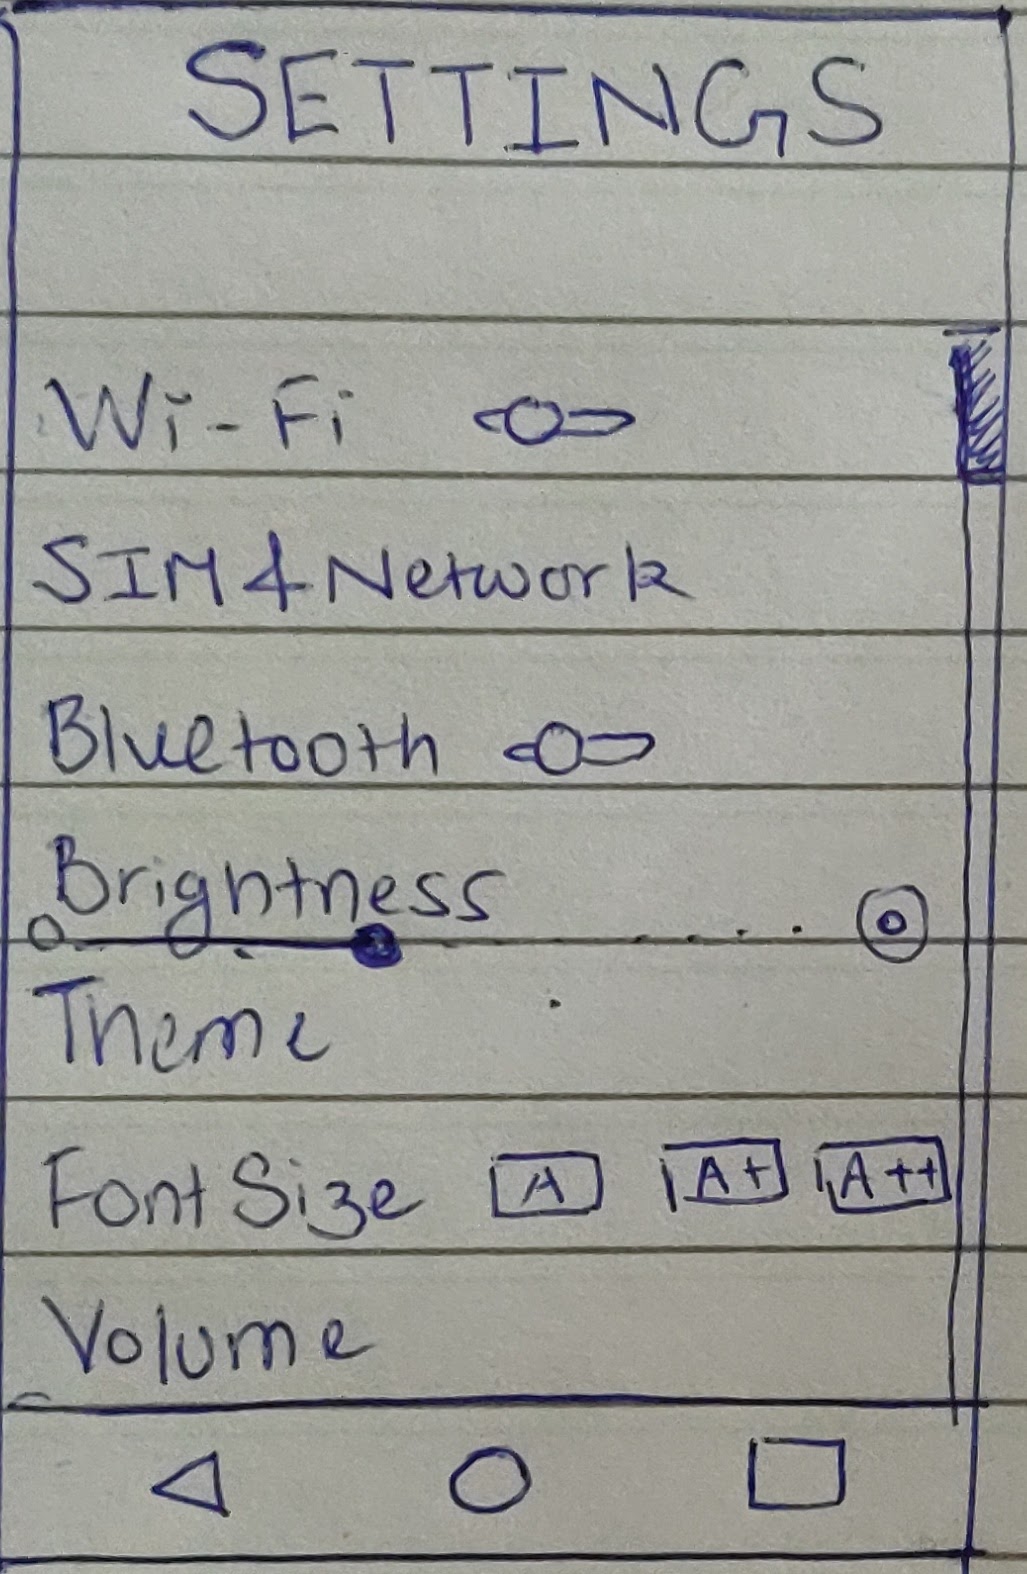 SETTINGS
Wi-Fi
SIM & Network
Bluetooth
Brightness
Theme
Font Size A A+ A++
Volume